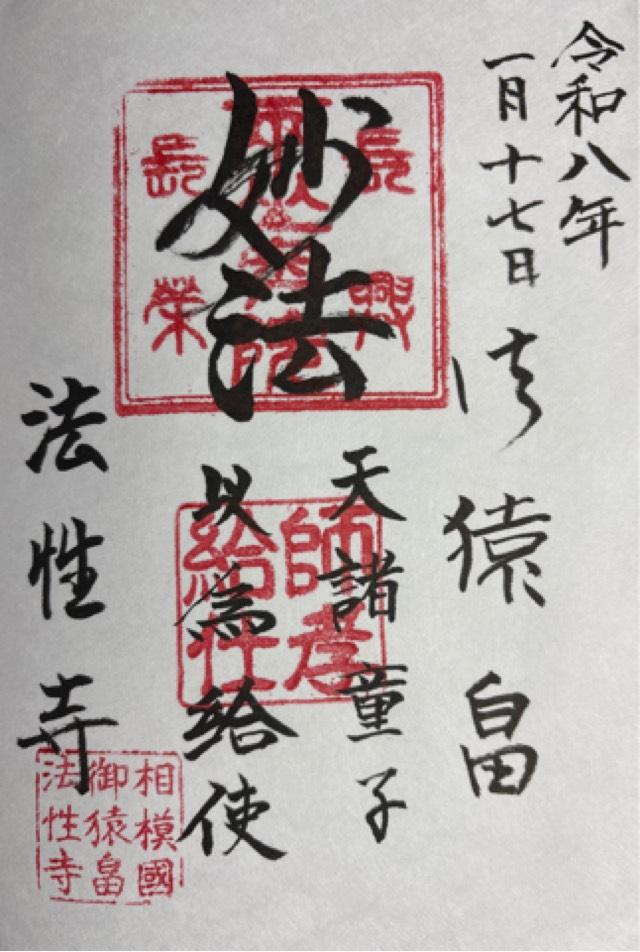 令和八年
一月十七日
御猿畠
妙法
天諸童子
以為給使
法性寺
長興
長榮
師孝
給仕
相模國
御猿畠
法性寺